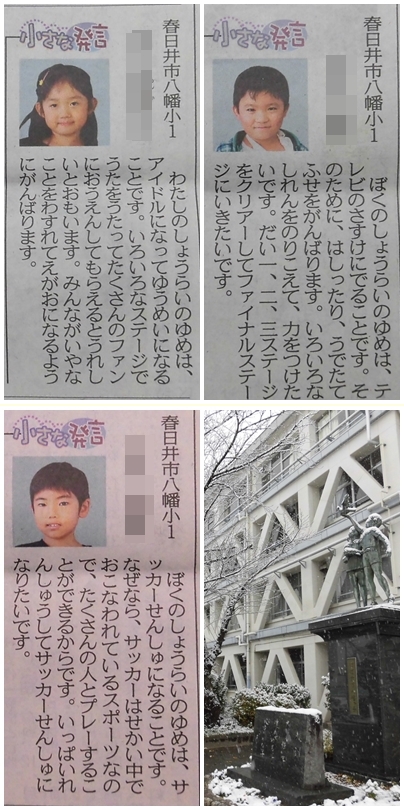 小さな発言
春日井市八幡小1
わたしのしょうらいのゆめは、
アイドルになってゆうめいになる
ことです。いろいろなステージで
うたをうたってたくさんのファン
におうえんしてもらえるとうれし
いとおもいます。みんながいやな
ことをわすれてえがおになるよう
にがんばります。
小さな発言
春日井市八幡小1
ぼくのしょうらいのゆめは、テ
レビのさすけにでることです。そ
のために、はしったり、うでたて
ふせをがんばります。いろいろな
しれんをのりこえて、力をつけた
いです。だい一、二、三ステージ
をクリアーしてファイナルステー
ジにいきたいです。
小さな発言
春日井市八幡小1
ぼくのしょうらいのゆめは、サ
ッカーせんしゅになることです。
なぜなら、サッカーはせかい中で
おこなわれているスポーツなの
で、たくさんの人とプレーするこ
とができるからです。いっぱいれ
んしゅうしてサッカーせんしゅに
なりたいです。